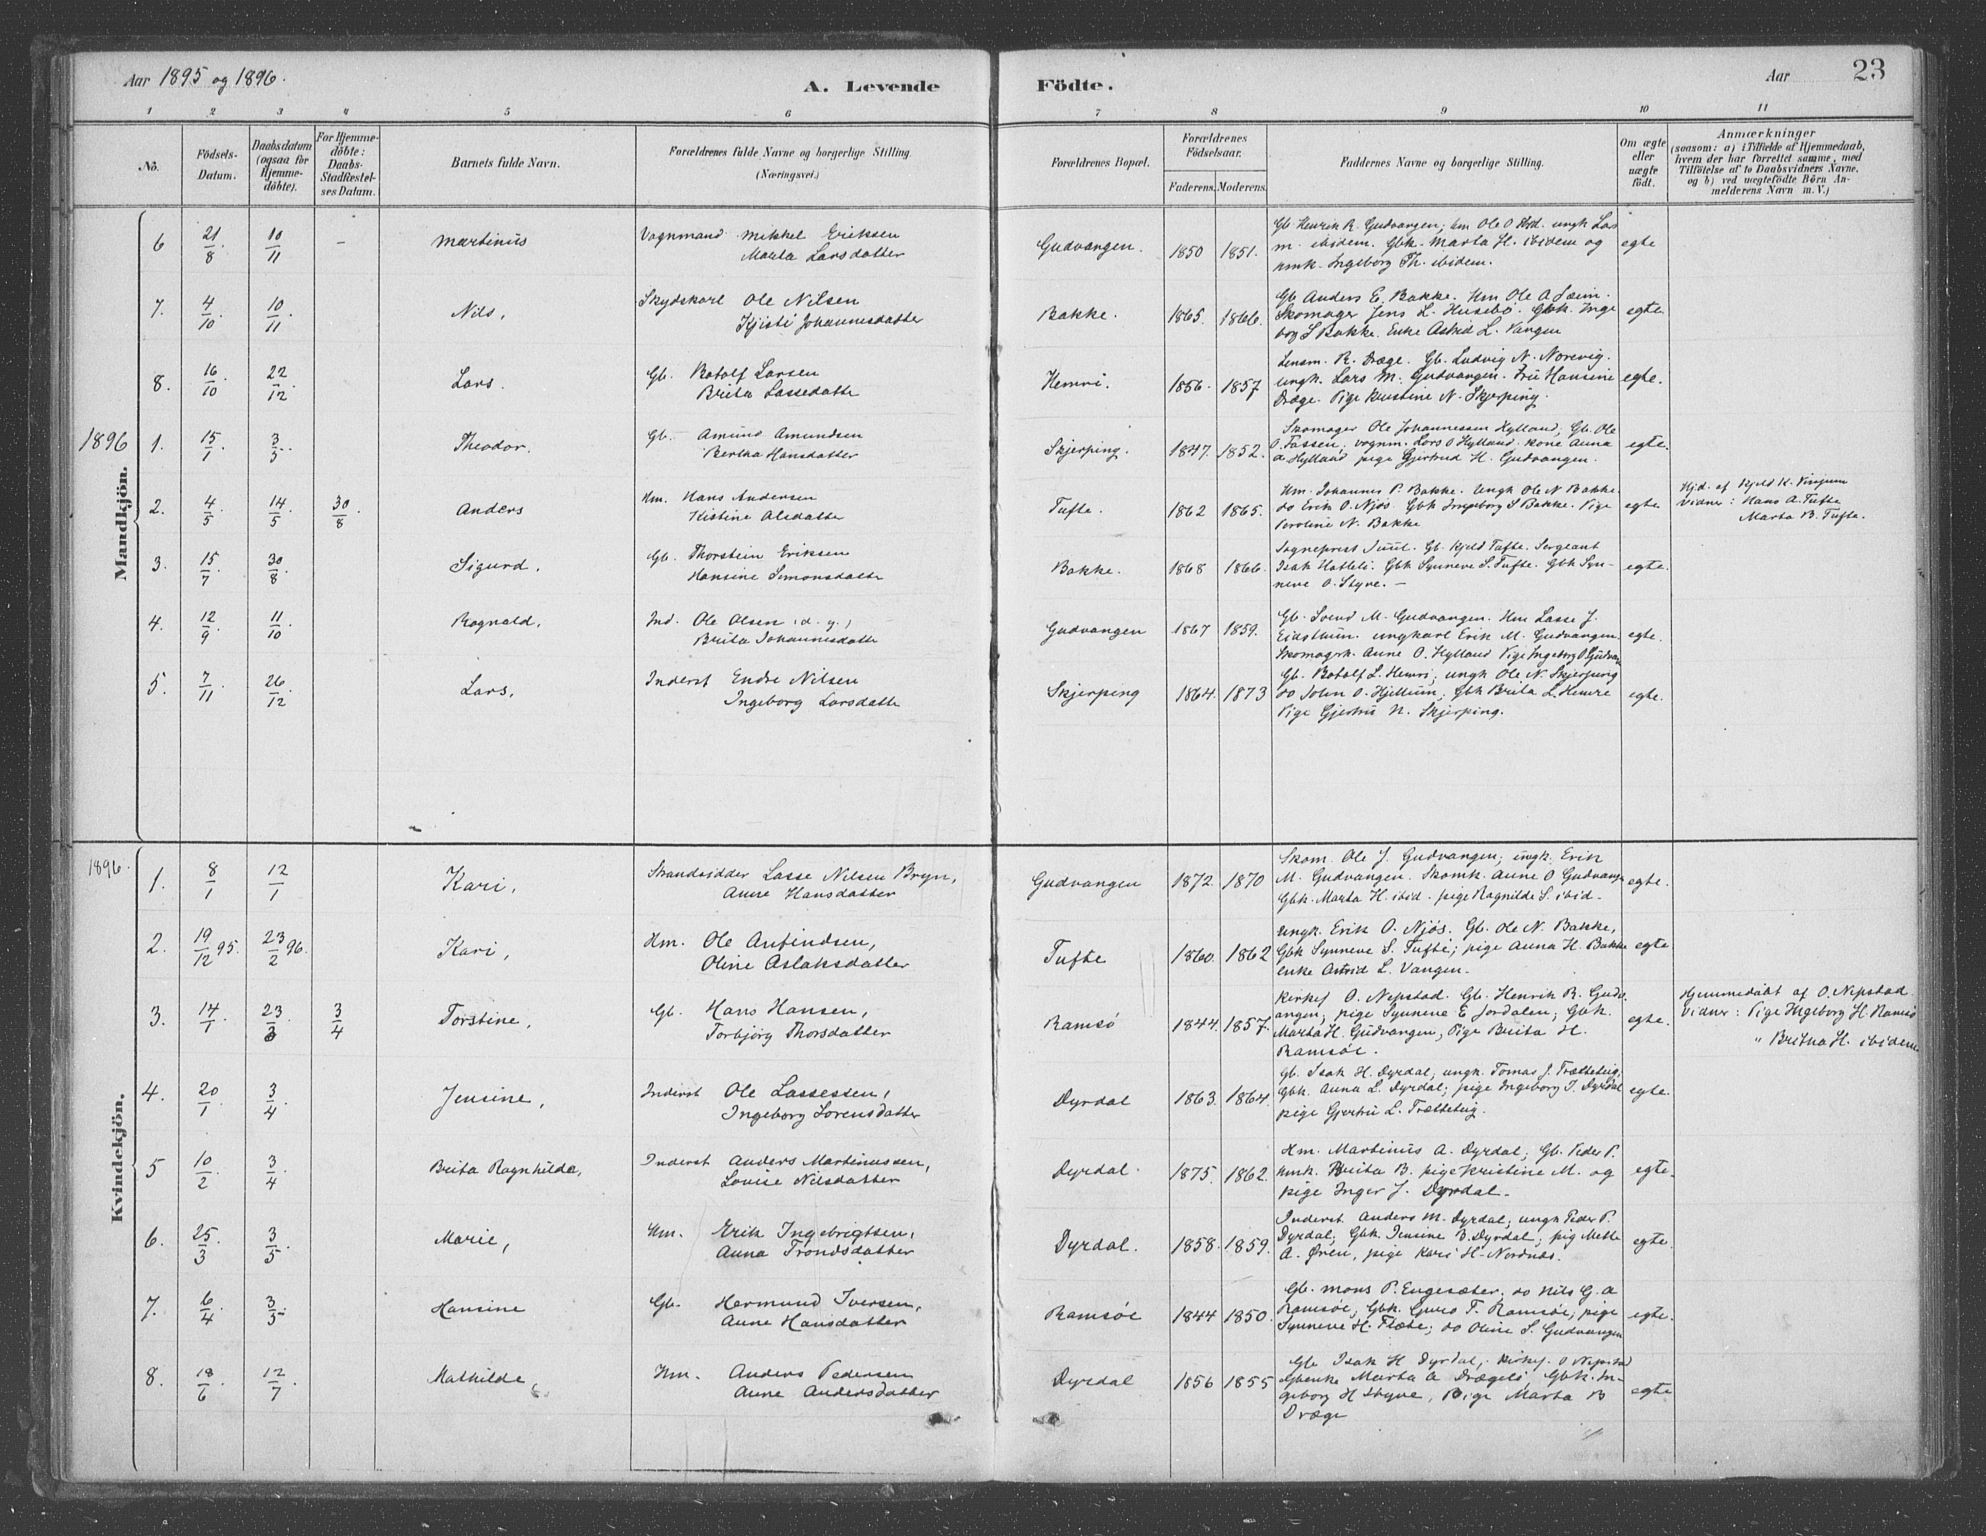 Aar 1895 og 1896.
A. Levende Födte.
Aar
23
1 2 3 4 5 6 7 8 9 10 11
No. Födsels-Datum. Daabsdatum (ogsaa for Hjemme-döbte). For Hjemme-döbte: Daabs-Stadfæstel-ses Datum. Barnets fulde Navn. Forældrenes fulde Navne og borgerlige Stilling. (Næringsvei.) Forældrenes Bopæl. Forældrenes Födselsaar. Faderens. Moderens. Faddernes Navne og borgerlige Stilling. Om ægte eller uægte födt. Anmærkninger
(saasom: a) i Tilfælde af Hjemmedaab,
hvem der har forrettet samme, med
Tilföielse af to Daabsvidners Navne,
og b) ved uægtefödte Börn An-
melderens Navn m. V.)
Mandkjön.
6 21/8. 10/11 – Martinus Vognmand Mikkel Eriksen
Marta Larsdatter
Gudvangen. 1850 1851.
Gb. Henrik R. Gudvangen, Hm Ole O ungk Lars
M. ibidem. Gbk. Marta H. ibidem og
Hmk. Ingeborg Th. ibidem.
egte
7. 4/10 10/11 Nils, Skydskarl Ole Nilsen
Kjisti Johannesdatter
Bakke. 1865. 1866.
Gb Anders E. Bakke. Hm Ole A
Skomager Jens L. Husebö. Gbk. Inge
borg S Bakke. Enke Astrid L. Vangen
egte.
8. 16/10 22/12 Lars. Gb. Botolf Larsen
Brita Lassedatte
Hemri. 1856. 1857
Lensm. R. Dræge. Gb. Ludvig N. Norevig.
ungk. Lars M. Gudvangen. Fru Hansine
Dræge. Pige Kristine N. Skjerping.
egte.
1896 1. 15/1 3/3. Theodor. Gb. Amund Amundsen
Bertha Hansdatter
Skjerping. 1847. 1852.
Skomager Ole Johannessen Hylland, Gb. Ole
O. Tassen, vognm. Lars O Hylland kone Anna
A Hylland pige Gjertrud H. Gudvangen.
egte.
2. 4/5 14/5 30/8 Anders Hm. Hans Andersen
Kistine Olsdatte
Tufte. 1862 1865.
Hm. Johannes P. Bakke. Ungk Ole N Bakke.
do Erik O. Njös. Gbk Ingeborg S Bakke. Pige
Peroline N. Bakke
egte
Hjd. af Kjeld H. Vinjum
Vidner: Hans A. Tufte
Marta B. Tufte.
3. 15/7 30/8. Sigurd. Gb. Thorstein Eriksen
Hansine Simonsdatte
Bakke. 1868 1866.
Sogneprest Juul. Gb. Kjeld Tufte. Sergeant
Isak Hatlelö. Gbk Synneve S. Tufte. Gbk Syn-
neve O. Styve. –
egte.
4. 12/9 11/10 Ragnald. Ind. Ole Olsen (d. y.)
Brita Johannesdatte
Gudvangen 1867 1859.
Gb. Svend M. Gudvangen. Hm Lasse J.
Eidsthun. ungkarl Erik M. Gudvangen.
Skomagrk. Anne O. Hylland Pige Ingeborg O. Gudvan
egte.
5. 7/11 26/12 Lars, Inderst Endre Nilsen
Ingeborg Larsdatte
Skjerping 1864. 1873
Gb. Botolf L. Hemri; ungk Ole N. Skjerping
do John O. Hjellum, Gbk Brita L. Hemre
Pige Gjertru N. Skjerping.
egte.
Kvindekjön.
1896. 1. 8/1 12/1 Kari, Strandsidder Lasse Nilsen Bryn,
Anne Hansdatter
Gudvangen 1872. 1870
Skom. Ole J. Gudvangen; ungk. Erik
M. Gudvangen. Skomk. Anne O Gudvange
Gbk. Marta H. ibid. pige Ragnilde S. ibid.
egte.
2. 19/12 95. 23/2 96. Kari, Hm. Ole Anfindsen,
Oline Aslaksdatter
Tufte 1860. 1862
Ungk. Erik O. Njös. Gb. Ole N. Bakke,
Gbk Synneve S. Tufte; pige Anna H. Bakke
enke Astrid L. Vangen.
egte
3. 14/1 23/3 3/4 Torstine, Gb. Hans Hansen,
Torbjörg Thorsdatter
Ramsö 1844. 1857.
Kirkes. O. Nepstad. Gb. Henrik R. Gudv-
angen; pige Synneve E Jordalen; Gbk.
Marta H. Gudvangen, Pige Brita H.
Ramsöe.
egte.
Hjemmedöbt af O. Nepstad
Vidner: Pige Ingeborg H. Ramsö
" Britha H. ibidem
4. 20/1 3/4 Jensine, Inderst Ole Lassessen,
Ingeborg Sörensdatter
Dyrdal 1863. 1864.
Gb. Isak H. Dyrdal, ungk. Tomas J. Trætteteig;
Gbk. Anna L. Dyrdal; pige Ingeborg J. Dyrdal
pige Gjertru L. Trætteteig.
egte.
5 10/2 3/4 Brita Ragnhilda, Inderst Anders Martinussen,
Lovise Nilsdatter
Dyrdal. 1875. 1862.
Hm. Martinus A. Dyrdal; Gb. Peder P.
Hmk. Brita B. pige Kristine M. og
pige Inger J. Dyrdal.
egte.
6. 25/3 3/5. Marie, Hm. Erik Ingebrigtsen,
Anna Trondsdatter
Dyrdal. 1858. 1859.
Inderst. Anders M. Dyrdal; ungk Peder P.
Dyrdal; Gbk. Jensine B. Dyrdal; pig Mette
A. Øren, pige Kari H. Nordnæs.
egte.
7. 6/4 3/5. Hansine Gb. Hermund Iversen,
Anne Hansdatter
Ramsöe 1844 1850.
Gb. Mons P. Engesæter. do Nils G. A
Ramsöe, Gbk. Guro T. Ramsöe; pige
Synneve H. ; do Oline S. Gudvangen
egte.
8. 18/6 12/7 Mathilde, Hm. Anders Pedersen
Anne Andersdatter
Dyrdal 1856 1855
Gb. Isak H Dyrdal, Kirkes. O Nepstad
Gbenke Marta A Drægeli, Gbk. In-
geborg H Styve, Pige Marta B
Dræge
egte